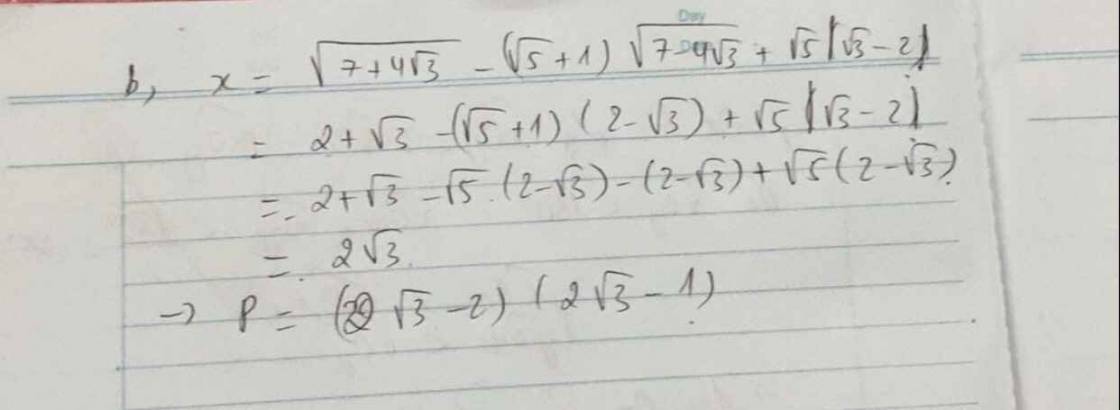 Day
b, x = √(7+4√3) - (√5+1) √(7-4√3) + √5 |√3-2|
= 2+√3 -(√5+1) (2-√3) + √5 |√3-2|
= 2+√3 -√5.(2-√3)-(2-√3)+√5(2-√3)
= 2√3
→ P = (2√3-2) (2√3-1)